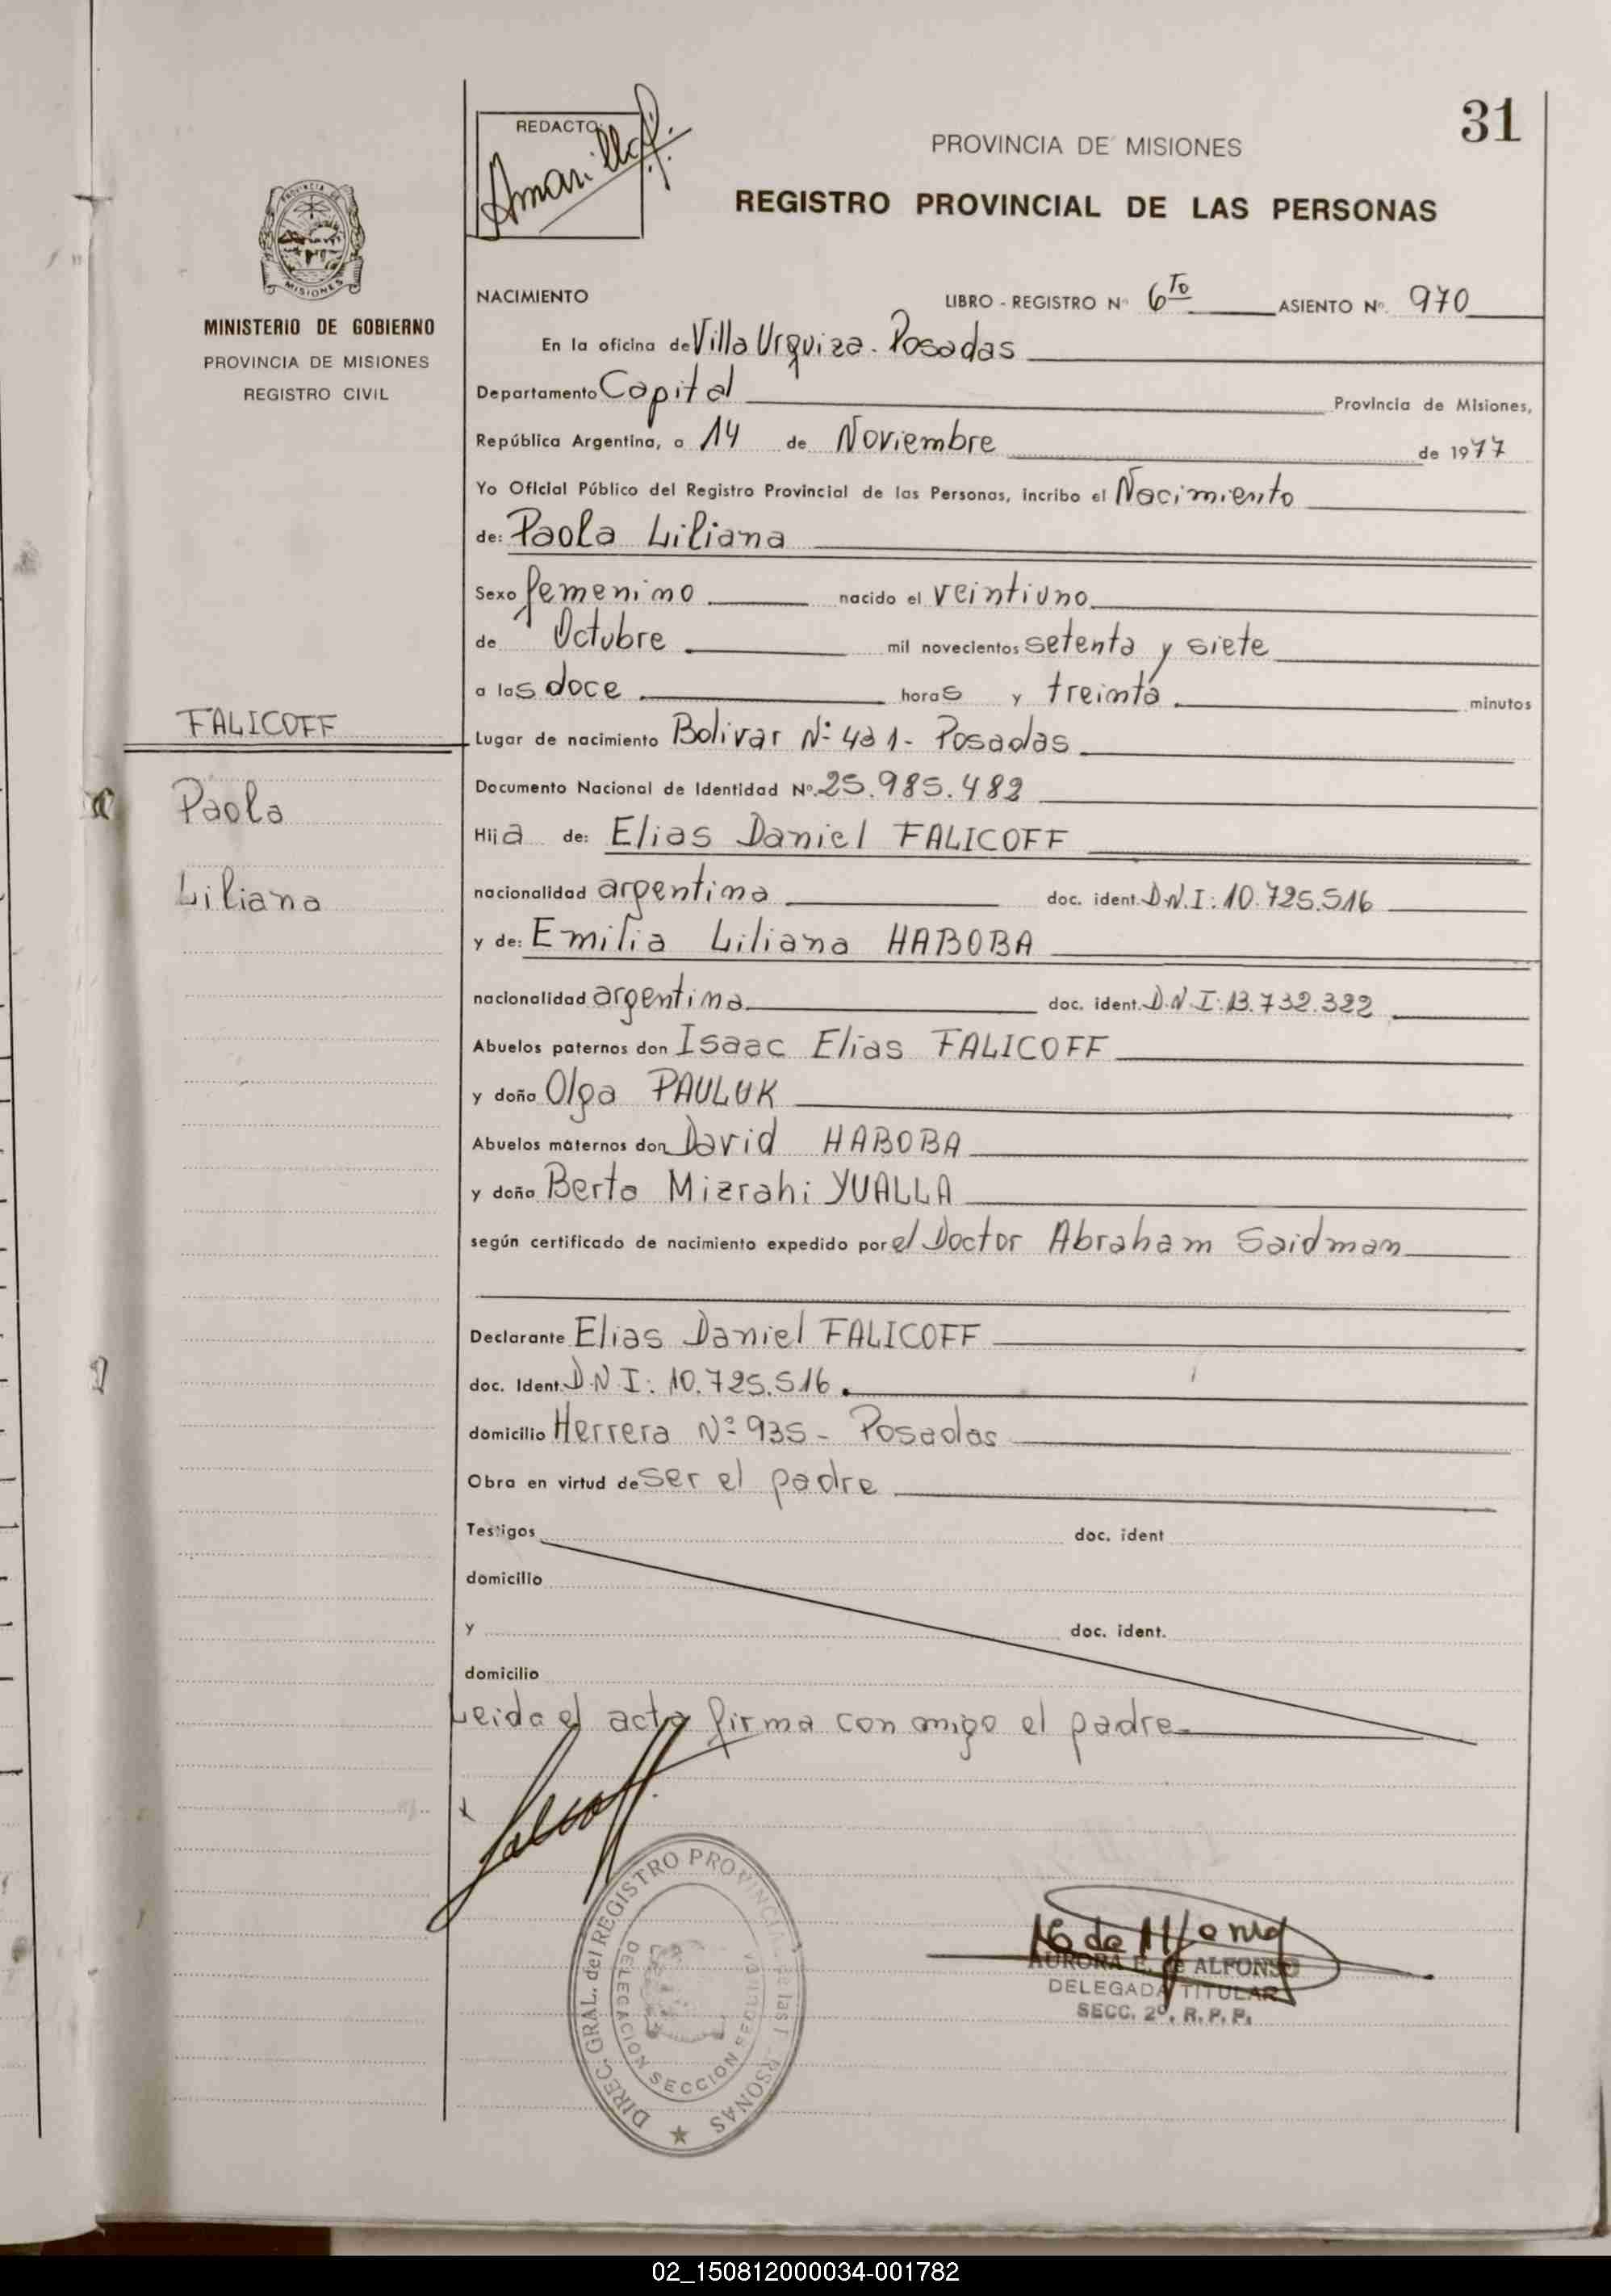 31
REDACTO:
Amarilla
PROVINCIA DE MISIONES
REGISTRO PROVINCIAL DE LAS PERSONAS
PROVINCIA DE
MISIONES
MINISTERIO DE GOBIERNO
PROVINCIA DE MISIONES
REGISTRO CIVIL
NACIMIENTO LIBRO - REGISTRO Nº 6to ASIENTO Nº. 970
En la oficina de Villa Urquiza - Posadas
Departamento Capital Provincia de Misiones,
República Argentina, a 14 de Noviembre de 1977
Yo Oficial Público del Registro Provincial de las Personas, incribo el Nacimiento
de: Paola Liliana
Sexo femenino nacido el veintiuno
de Octubre mil novecientos setenta y siete
a las doce horas y treinta minutos
FALICOFF
Paola
Liliana
Lugar de nacimiento Bolivar Nº 421 - Posadas
Documento Nacional de Identidad Nº. 25.985.482
Hija de: Elias Daniel FALICOFF
nacionalidad argentina doc. ident. D.N.I: 10.725.516
y de: Emilia Liliana HABOBA
nacionalidad argentina doc. ident. D.N.I: 13.732.322
Abuelos paternos don Isaac Elias FALICOFF
y doña Olga PAULUK
Abuelos maternos don David HABOBA
y doña Berta Mizrahi YUALLA
según certificado de nacimiento expedido por el Doctor Abraham Saidman
Declarante Elias Daniel FALICOFF
doc. Ident. D.N.I: 10.725.516.
domicilio Herrera Nº 935 - Posadas
Obra en virtud de ser el padre
Testigos doc. ident
domicilio
y doc. ident.
domicilio
Leida el acta firma con migo el padre
Falicoff
DIREC. GRAL. del REGISTRO PROVINCIAL de las PERSONAS
DELEGACION SECCION SEGUNDA
AURORA E. de ALFONSO
DELEGADA TITULAR
SECC. 2º. R. P. P.
02_150812000034-001782